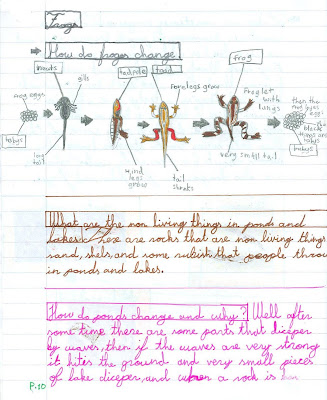 Frogs
How do froges change
frog eggs
babys
mouts
gills
long tail
tadpole
hind legs grow
toad
forelegs grow
tail shrinks
frog
froglet with lungs
very small tail
then the frog layes egg!
the black things are babys
babys
What are the non living things in ponds and
lakes? There are rocks that are non living things
sand, shels, and some rubish that people throw
in ponds and lakes.
How do ponds change and why? Well after
some time there are some parts that dieeper
by waves, then if the waves are very strong
it hites the ground and very small pieces
of lake dieeper, and when a rock is
P.20